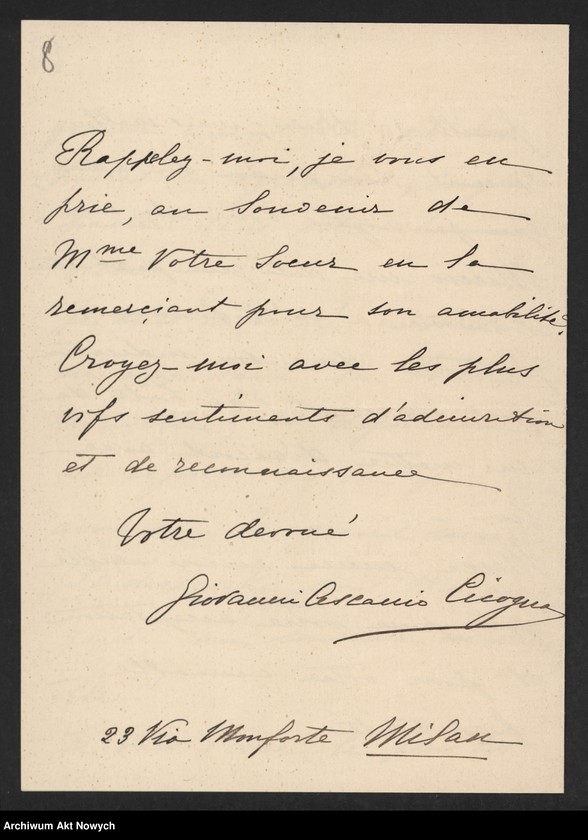 8
Rappelez-moi, je vous en
prie, au Souvenir de
Mme Votre Soeur en la
remerciant pour son amabilité.
Croyez-moi avec les plus
vifs sentiments d'admiration
et de reconnaissance
Votre devoué
Giovanni Ascanio Cicogna
23 Via Monforte Milan
Archiwum Akt Nowych